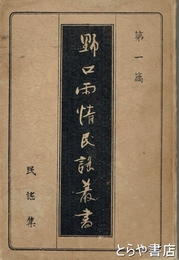 第一篇
野口雨情民謡叢書
民謡集
とらや書店